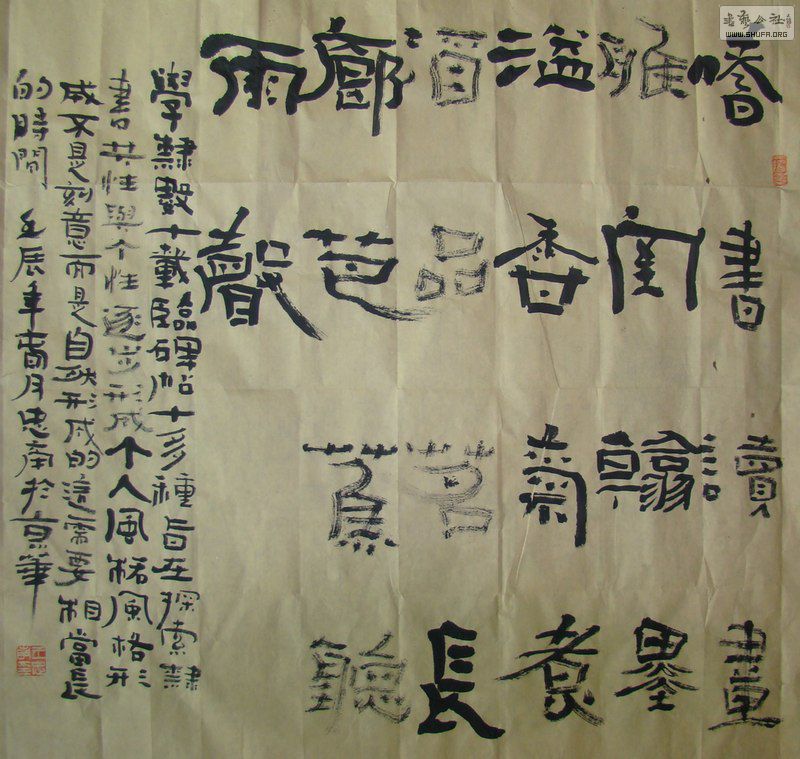 嗜書讀畫
雅室翰墨
溢香氣煮
酒品茗長
廊芭蕉聽
雨聲
學隸數十載臨碑帖十多種旨在探索隸
書共性與个性逐步形成个人風格風格形
成不是刻意而是自然形成的這需要相當長
的時間 壬辰年月忠南於京華
書藝公社
WWW.SHUFA.ORG